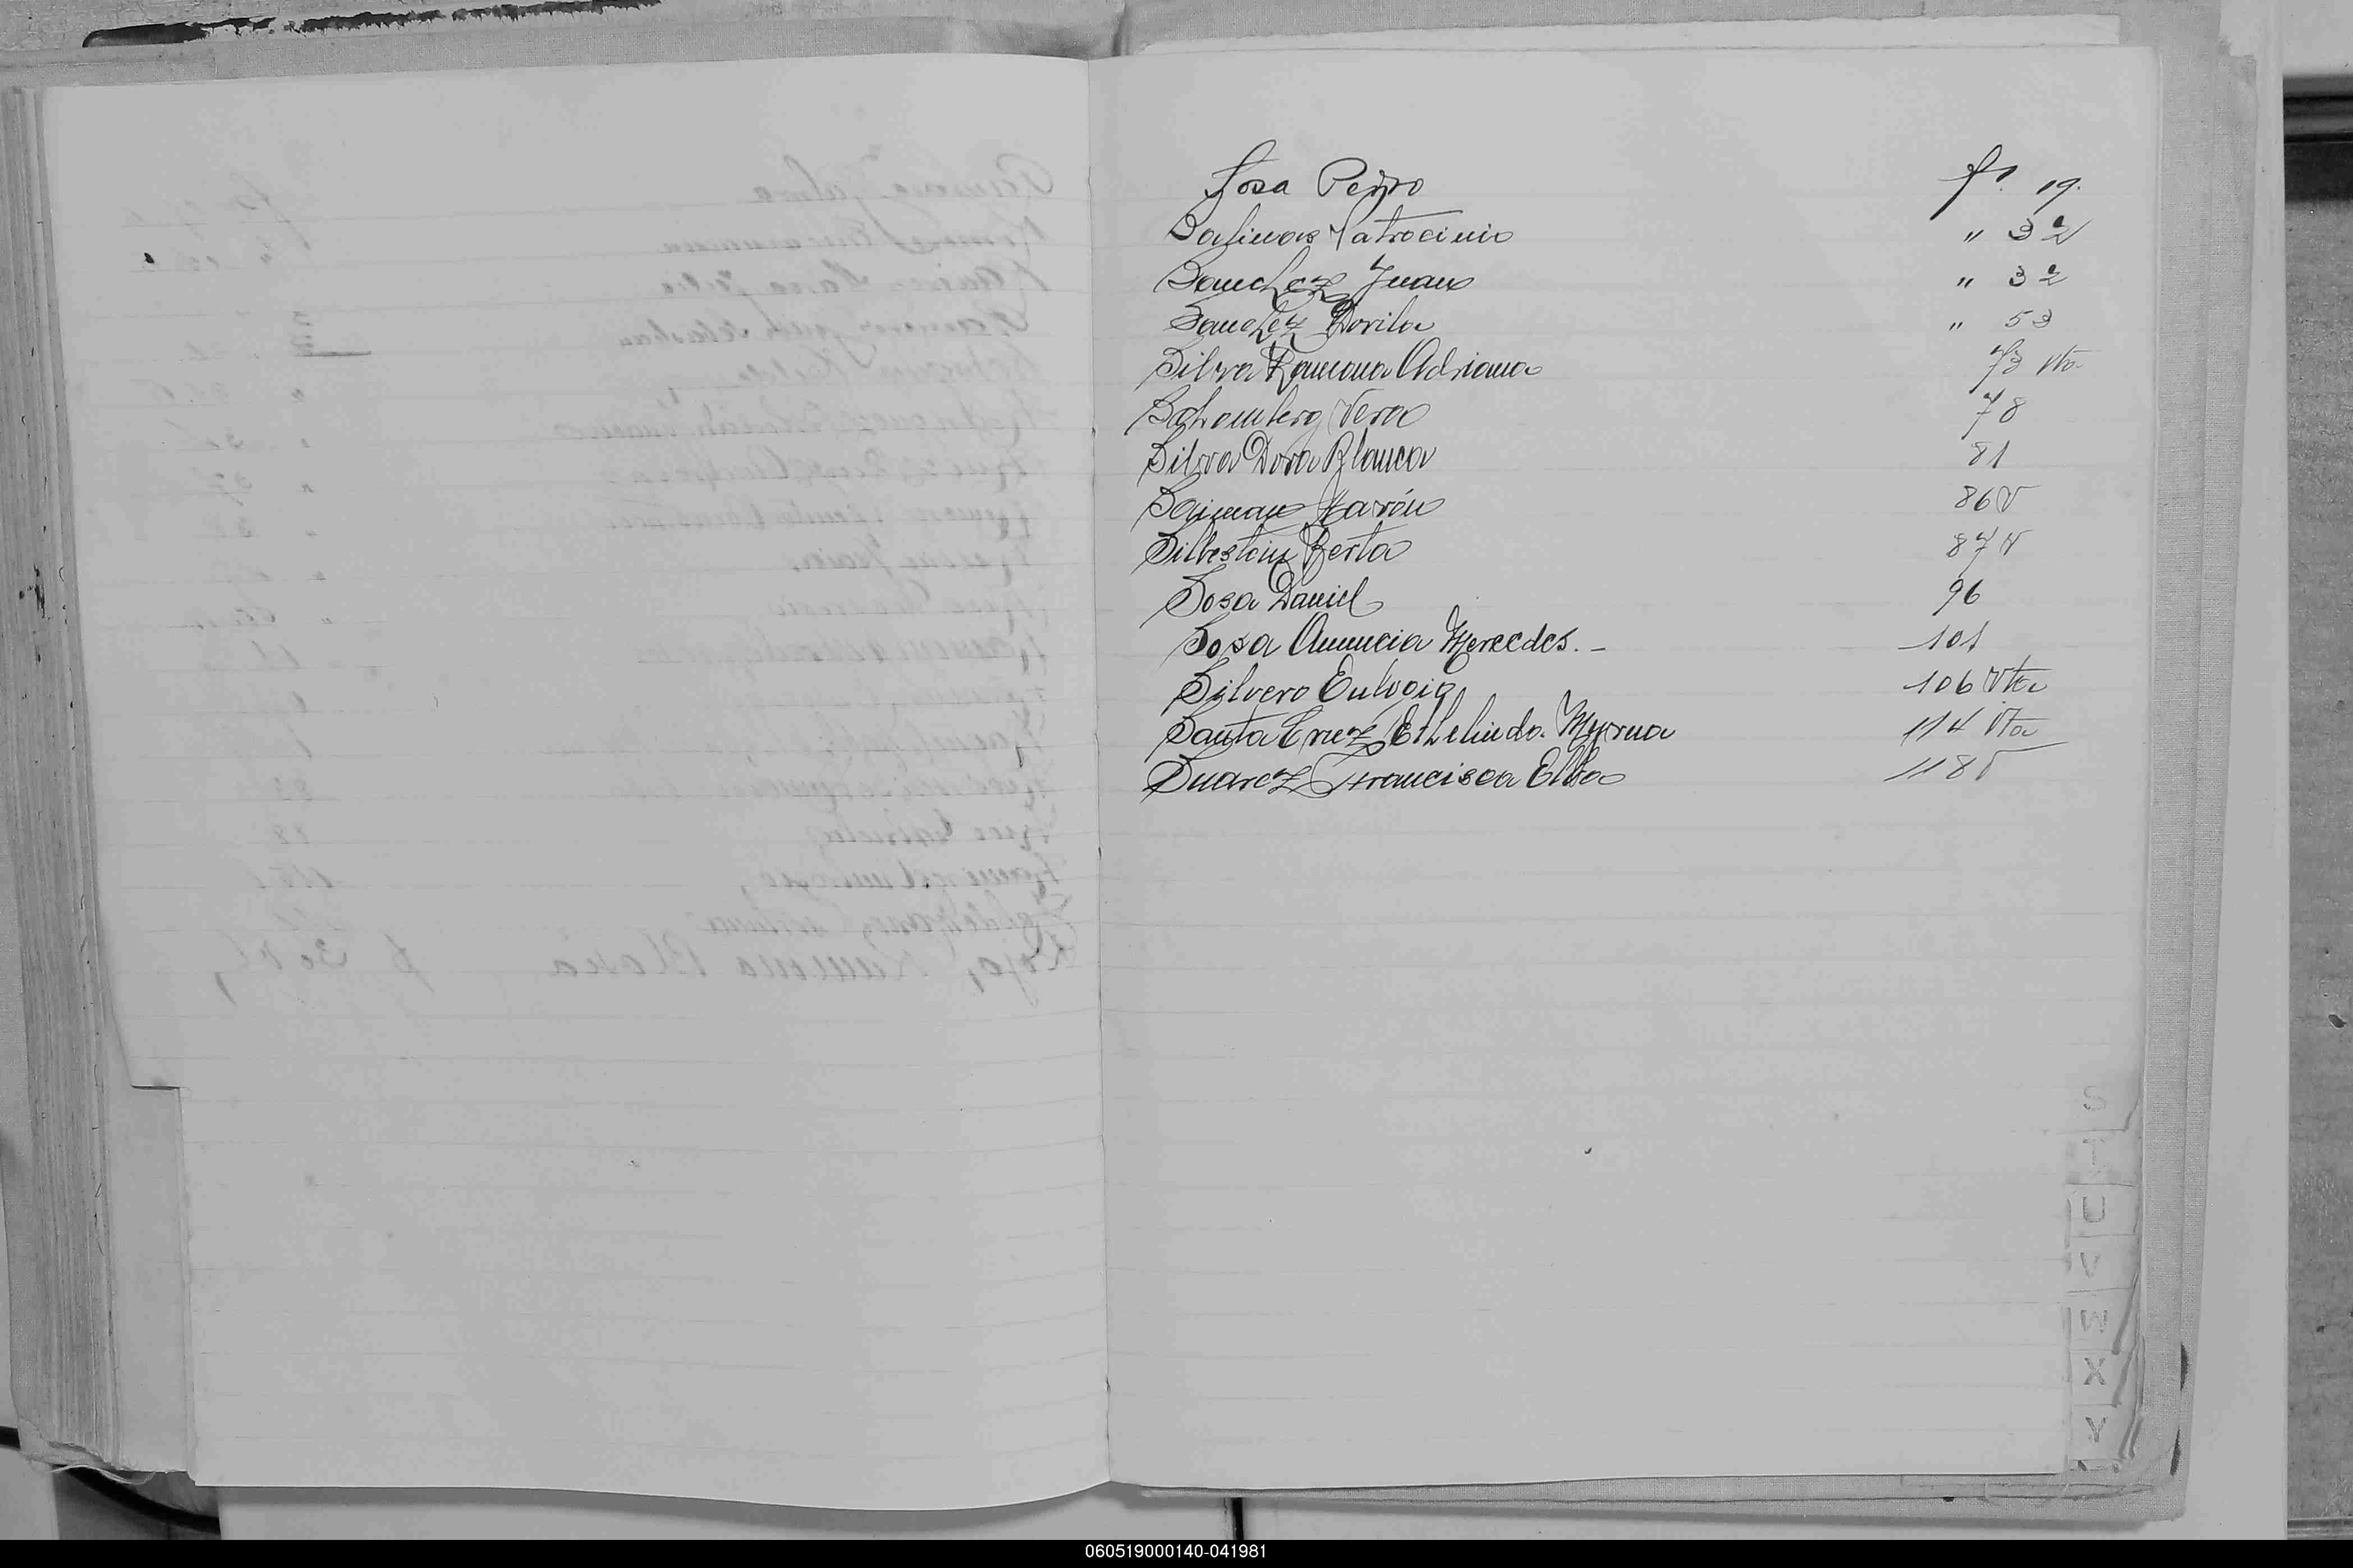 Sosa Pedro fs. 19.
Salinas Patrocinio " 32
Sanchez Juan " 32
Sanchez Dorila " 53
Silva Ramona Adriana 73 vto.
Schomberg Vera 78
Silva Dora Blanca 81
Saiman Marón 86 V
Silbestein Berta 87 V
Sosa Daniel 96
Sosa Anuncia Mercedes. - 101
Silvero Eulogia 106 Vta
Santa Cruz Ethelinda Myrna 114 Vta
Suarez Francisca Elba 118 V
S
T
U
V
W
X
Y
060519000140-041981